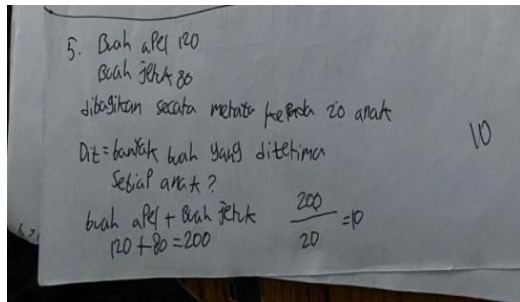 5. Buah apel 120
Buah jeruk 80
dibagikan secara merata kepada 20 anak
10
Dit = banyak buah yang diterima
Setiap anak?
buah apel + Buah jeruk
120 + 80 = 200
200
20
= 10